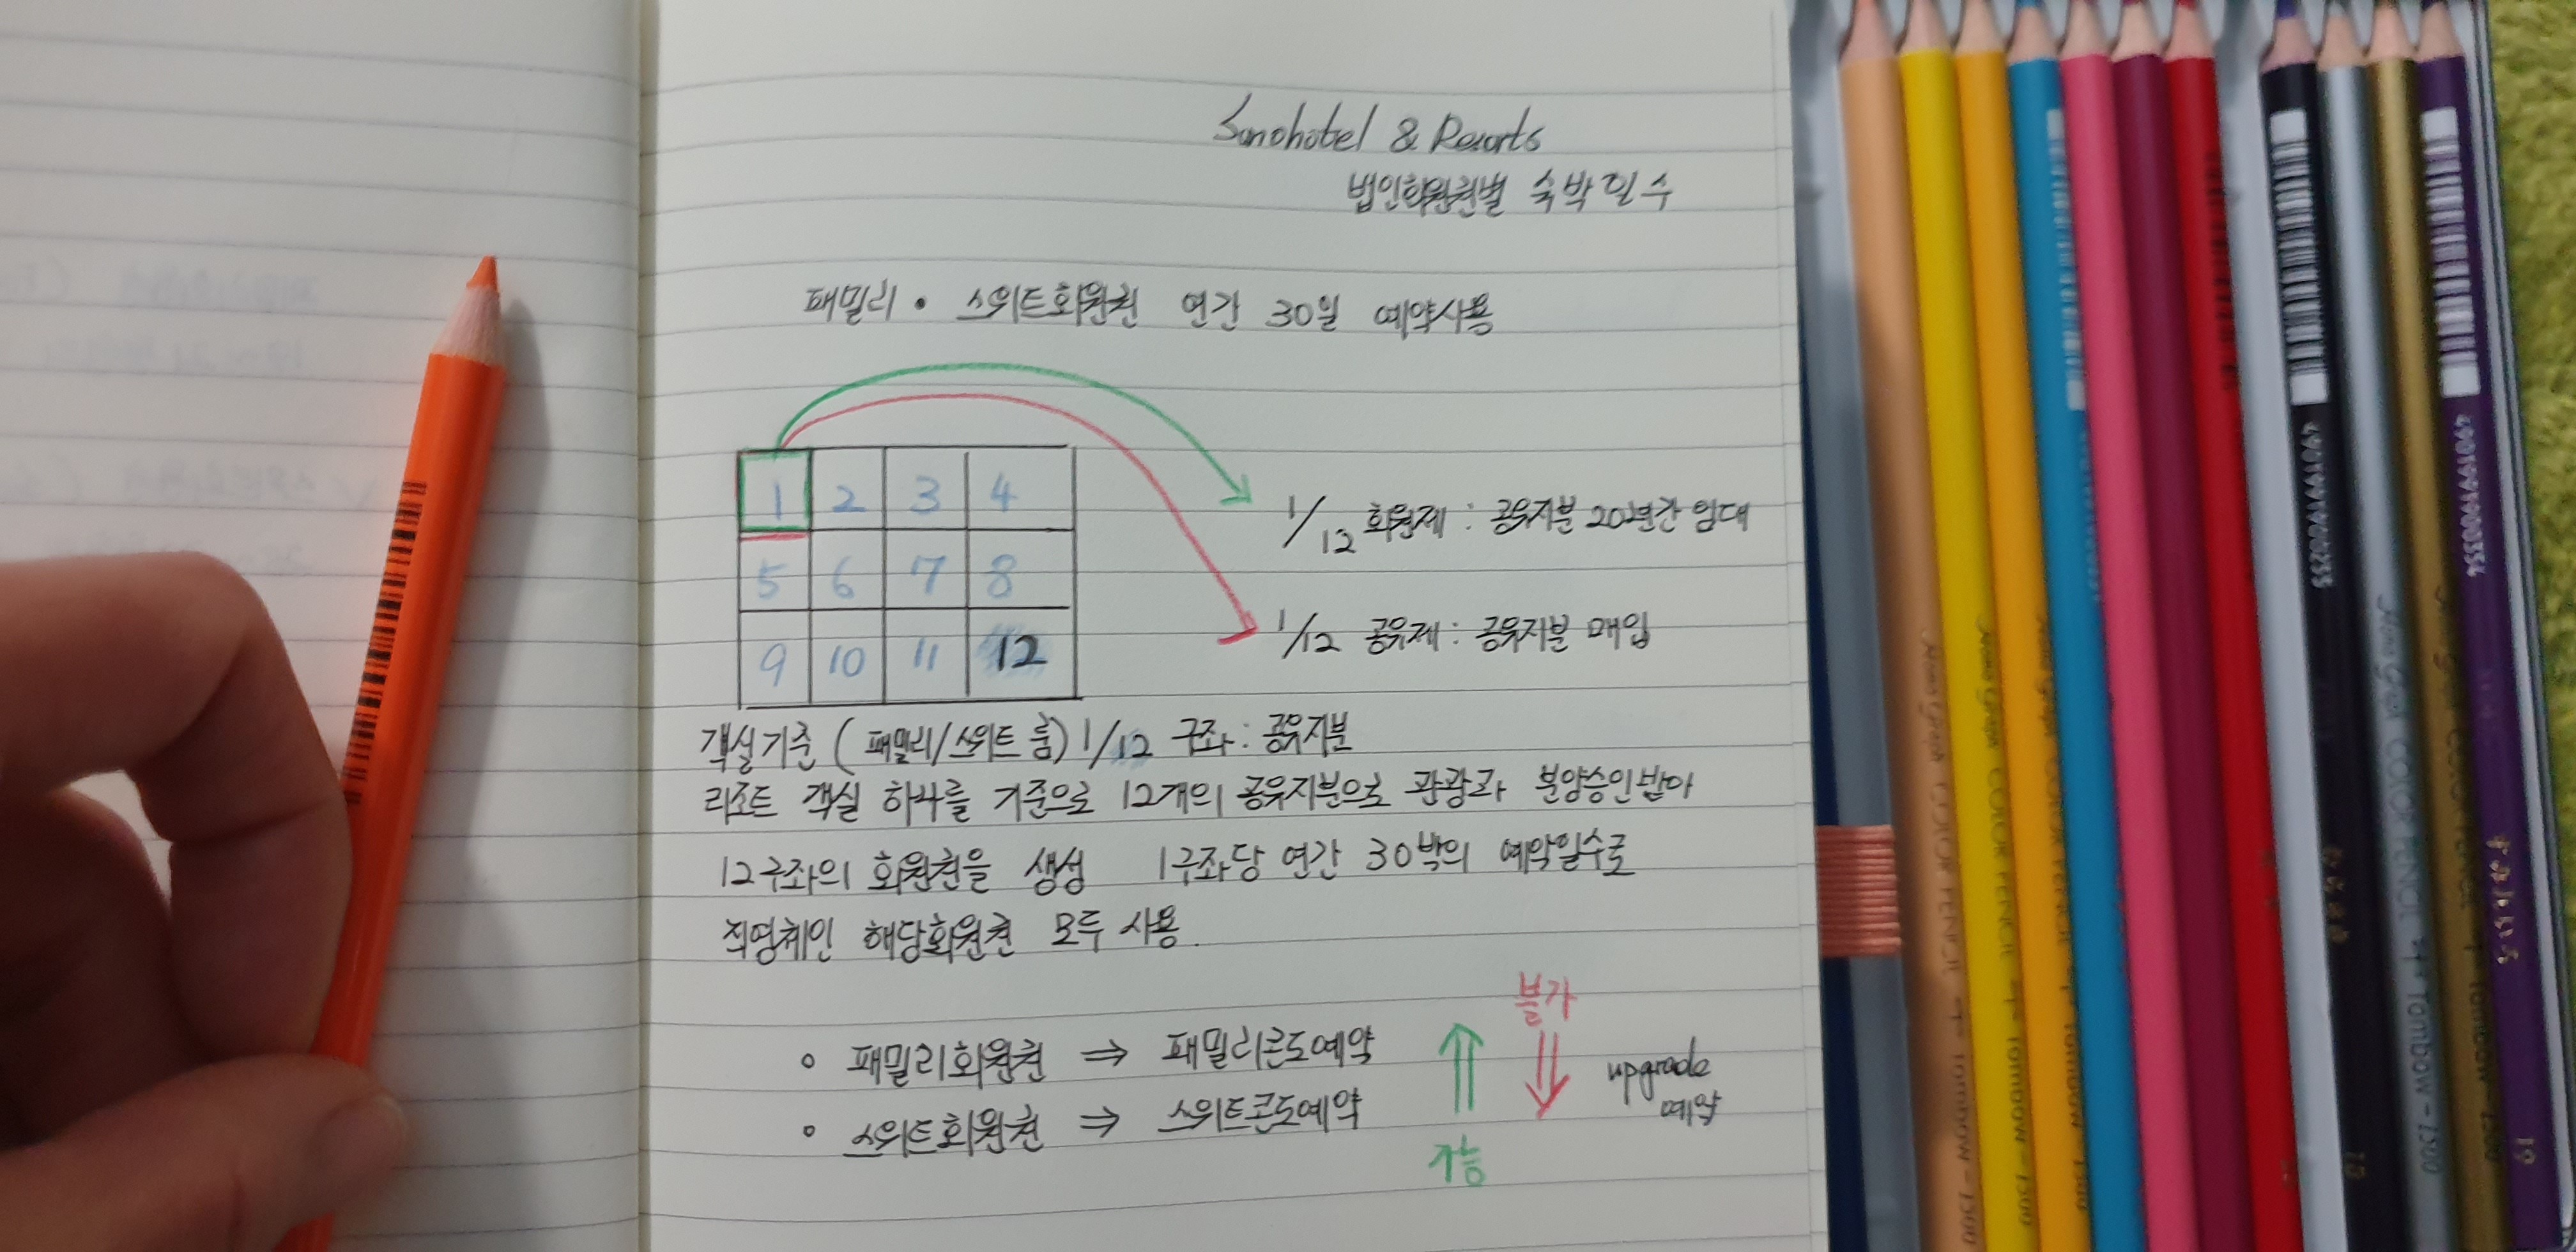 Sonohotel & Resorts
법인회원권별 숙박일수
패밀리 • 스위트회원권 연간 30일 예약사용
1 2 3 4
5 6 7 8
9 10 11 12
1/12 회원제 : 공유지분 20년간 임대
1/12 공유제 : 공유지분 매입
객실기준 ( 패밀리/스위트 룸) 1/12 구좌 : 공유지분
리조트 객실 하나를 기준으로 12개의 공유지분으로 관광과 분양승인받아
12구좌의 회원권을 생성 1구좌당 연간 30박의 예약일수로
직영체인 해당회원권 모두 사용.
불가
◦ 패밀리회원권 ⇒ 패밀리콘도예약
upgrade
예약
◦ 스위트회원권 ⇒ 스위트콘도예약
가능